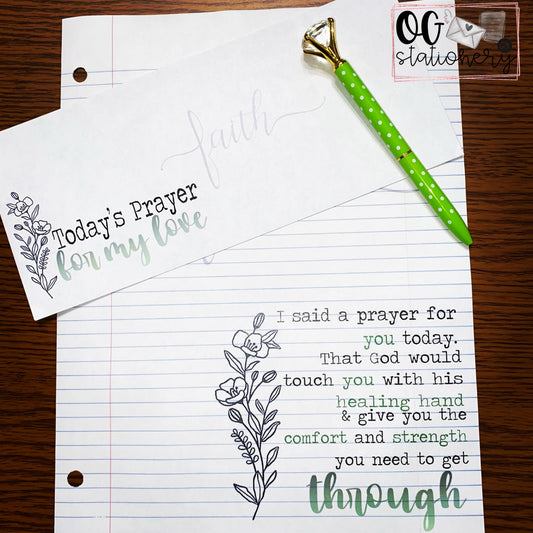 OG
stationery
faith
Today's Prayer
for my love
I said a prayer for
you today.
That God would
touch you with his
healing hand
& give you the
comfort and strength
you need to get
through